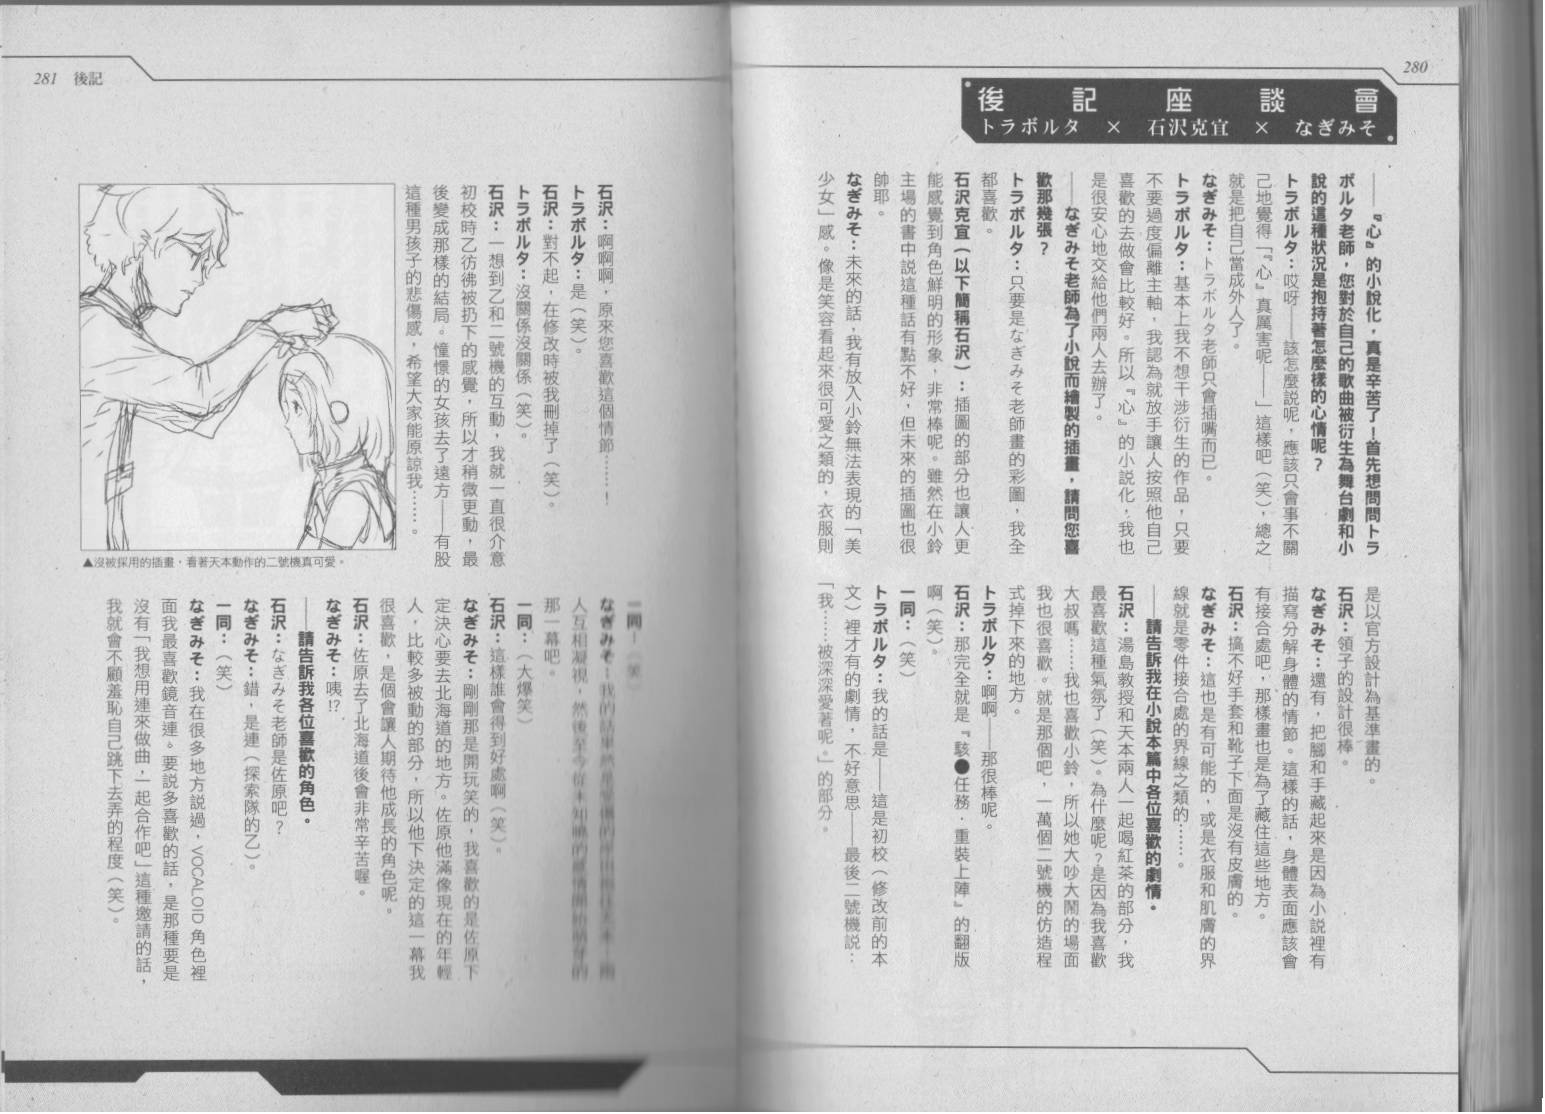 280
後記座談會
トラボルタ × 石沢克宜 × なぎみそ
——『心』的小說化，真是辛苦了！首先想問問トラ
ボルタ老師，您對於自己的歌曲被衍生為舞台劇和小
說的這種狀況是抱持著怎麼樣的心情呢？
トラボルタ：哎呀——該怎麼說呢，應該只會事不關
己地覺得「『心』真厲害呢——」這樣吧（笑），總之
就是把自己當成外人了。
なぎみそ：トラボルタ老師只會插嘴而已。
トラボルタ：基本上我不想干涉衍生的作品，只要
不要過度偏離主軸，我認為就放手讓人按照他自己
喜歡的去做會比較好。所以『心』的小說化，我也
是很安心地交給他們兩人去辦了。
——なぎみそ老師為了小說而繪製的插畫，請問您喜
歡那幾張？
トラボルタ：只要是なぎみそ老師畫的彩圖，我全
都喜歡。
石沢克宜（以下簡稱石沢）：插圖的部分也讓人更
能感覺到角色鮮明的形象，非常棒呢。雖然在小鈴
主場的書中說這種話有點不好，但未來的插圖也很
帥耶。
なぎみそ：未來的話，我有放入小鈴無法表現的「美
少女」感。像是笑容看起來很可愛之類的，衣服則
是以官方設計為基準畫的。
石沢：領子的設計很棒。
なぎみそ：還有，把腳和手藏起來是因為小說裡有
描寫分解身體的情節。這樣的話，身體表面應該會
有接合處吧，那樣畫也是為了藏住這些地方。
石沢：搞不好手套和靴子下面是沒有皮膚的。
なぎみそ：這也是有可能的，或是衣服和肌膚的界
線就是零件接合處的界線之類的……。
——請告訴我在小說本篇中各位喜歡的劇情。
石沢：湯島教授和天本兩人一起喝紅茶的部分，我
最喜歡這種氣氛了（笑）。為什麼呢？是因為我喜歡
大叔嗎……我也喜歡小鈴，所以她大吵大鬧的場面
我也很喜歡。就是那個吧，一萬個二號機的仿造程
式掉下來的地方。
トラボルタ：啊啊——那很棒呢。
石沢：那完全就是『駭●任務‧重裝上陣』的翻版
啊（笑）。
一同：（笑）
トラボルタ：我的話是——這是初校（修改前的本
文）裡才有的劇情，不好意思——最後二號機說：
「我……被深深愛著呢。」的部分。
281 後記
石沢：啊啊啊，原來您喜歡這個情節……！
トラボルタ：是（笑）。
石沢：對不起，在修改時被我刪掉了（笑）。
トラボルタ：沒關係沒關係（笑）。
石沢：一想到乙和二號機的互動，我就一直很介意
初校時乙彷彿被扔下的感覺，所以才稍微更動，最
後變成那樣的結局。憧憬的女孩去了遠方——有股
這種男孩子的悲傷感，希望大家能原諒我……。
▲沒被採用的插畫，看著天本動作的二號機真可愛。
一同：（笑）
なぎみそ：我的話
人互相凝視，然後至今從未知曉的感情開始萌芽的
那一幕吧。
一同：（大爆笑）
石沢：這樣誰會得到好處啊（笑）。
なぎみそ：剛剛那是開玩笑的，我喜歡的是佐原下
定決心要去北海道的地方。佐原他滿像現在的年輕
人，比較多被動的部分，所以他下決定的這一幕我
很喜歡，是個會讓人期待他成長的角色呢。
石沢：佐原去了北海道後會非常辛苦喔。
なぎみそ：咦!?
——請告訴我各位喜歡的角色。
石沢：なぎみそ老師是佐原吧？
なぎみそ：錯，是連（探索隊的乙）。
一同：（笑）
なぎみそ：我在很多地方說過，VOCALOID 角色裡
面我最喜歡鏡音連。要說多喜歡的話，是那種要是
沒有「我想用連來做曲，一起合作吧」這種邀請的話，
我就會不顧羞恥自己跳下去弄的程度（笑）。